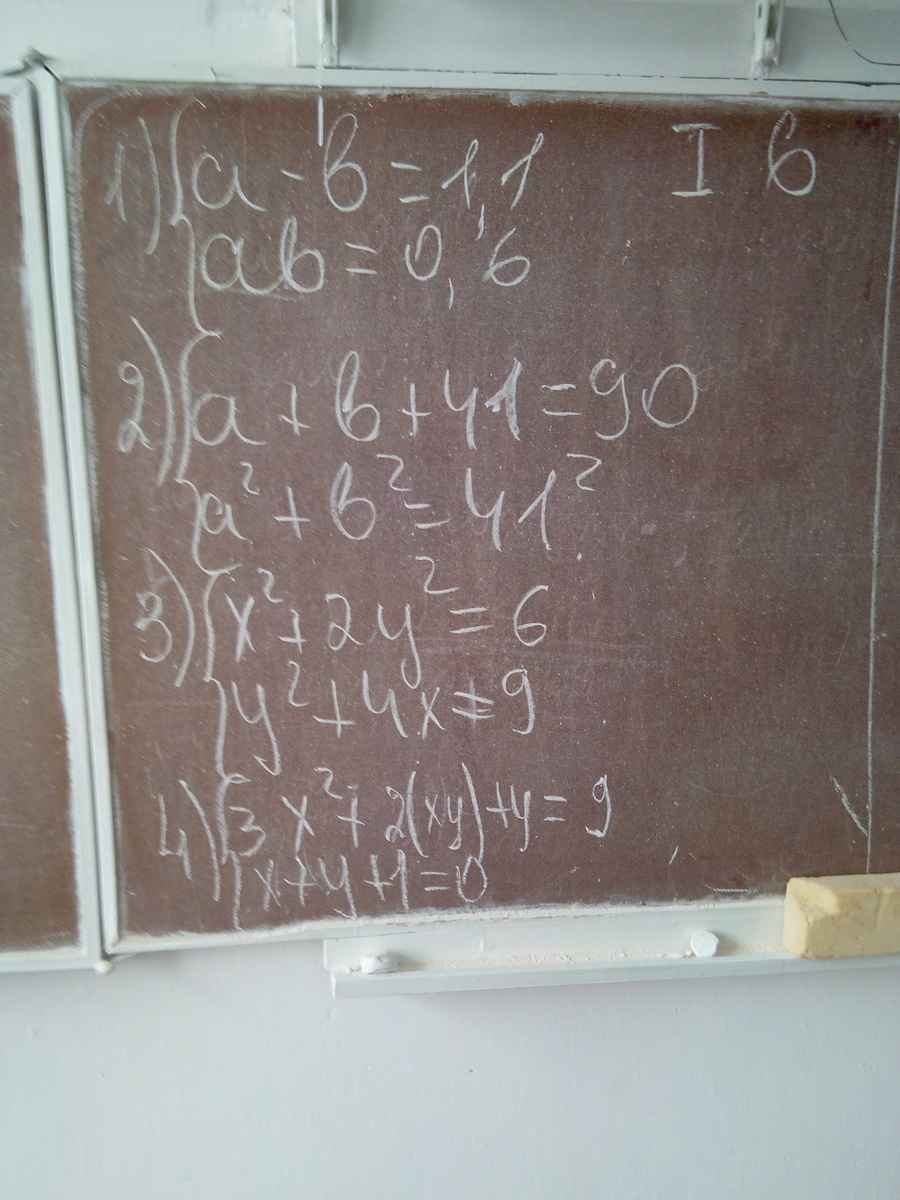 I в
1) { a - b = 1,1
ab = 0,6
2) { a + b + 41 = 90
a² + b² = 41²
3) { x² + 2y² = 6
y² + 4x = 9
4) { 3x² + 2(xy) + y = 9
x + y + 1 = 0